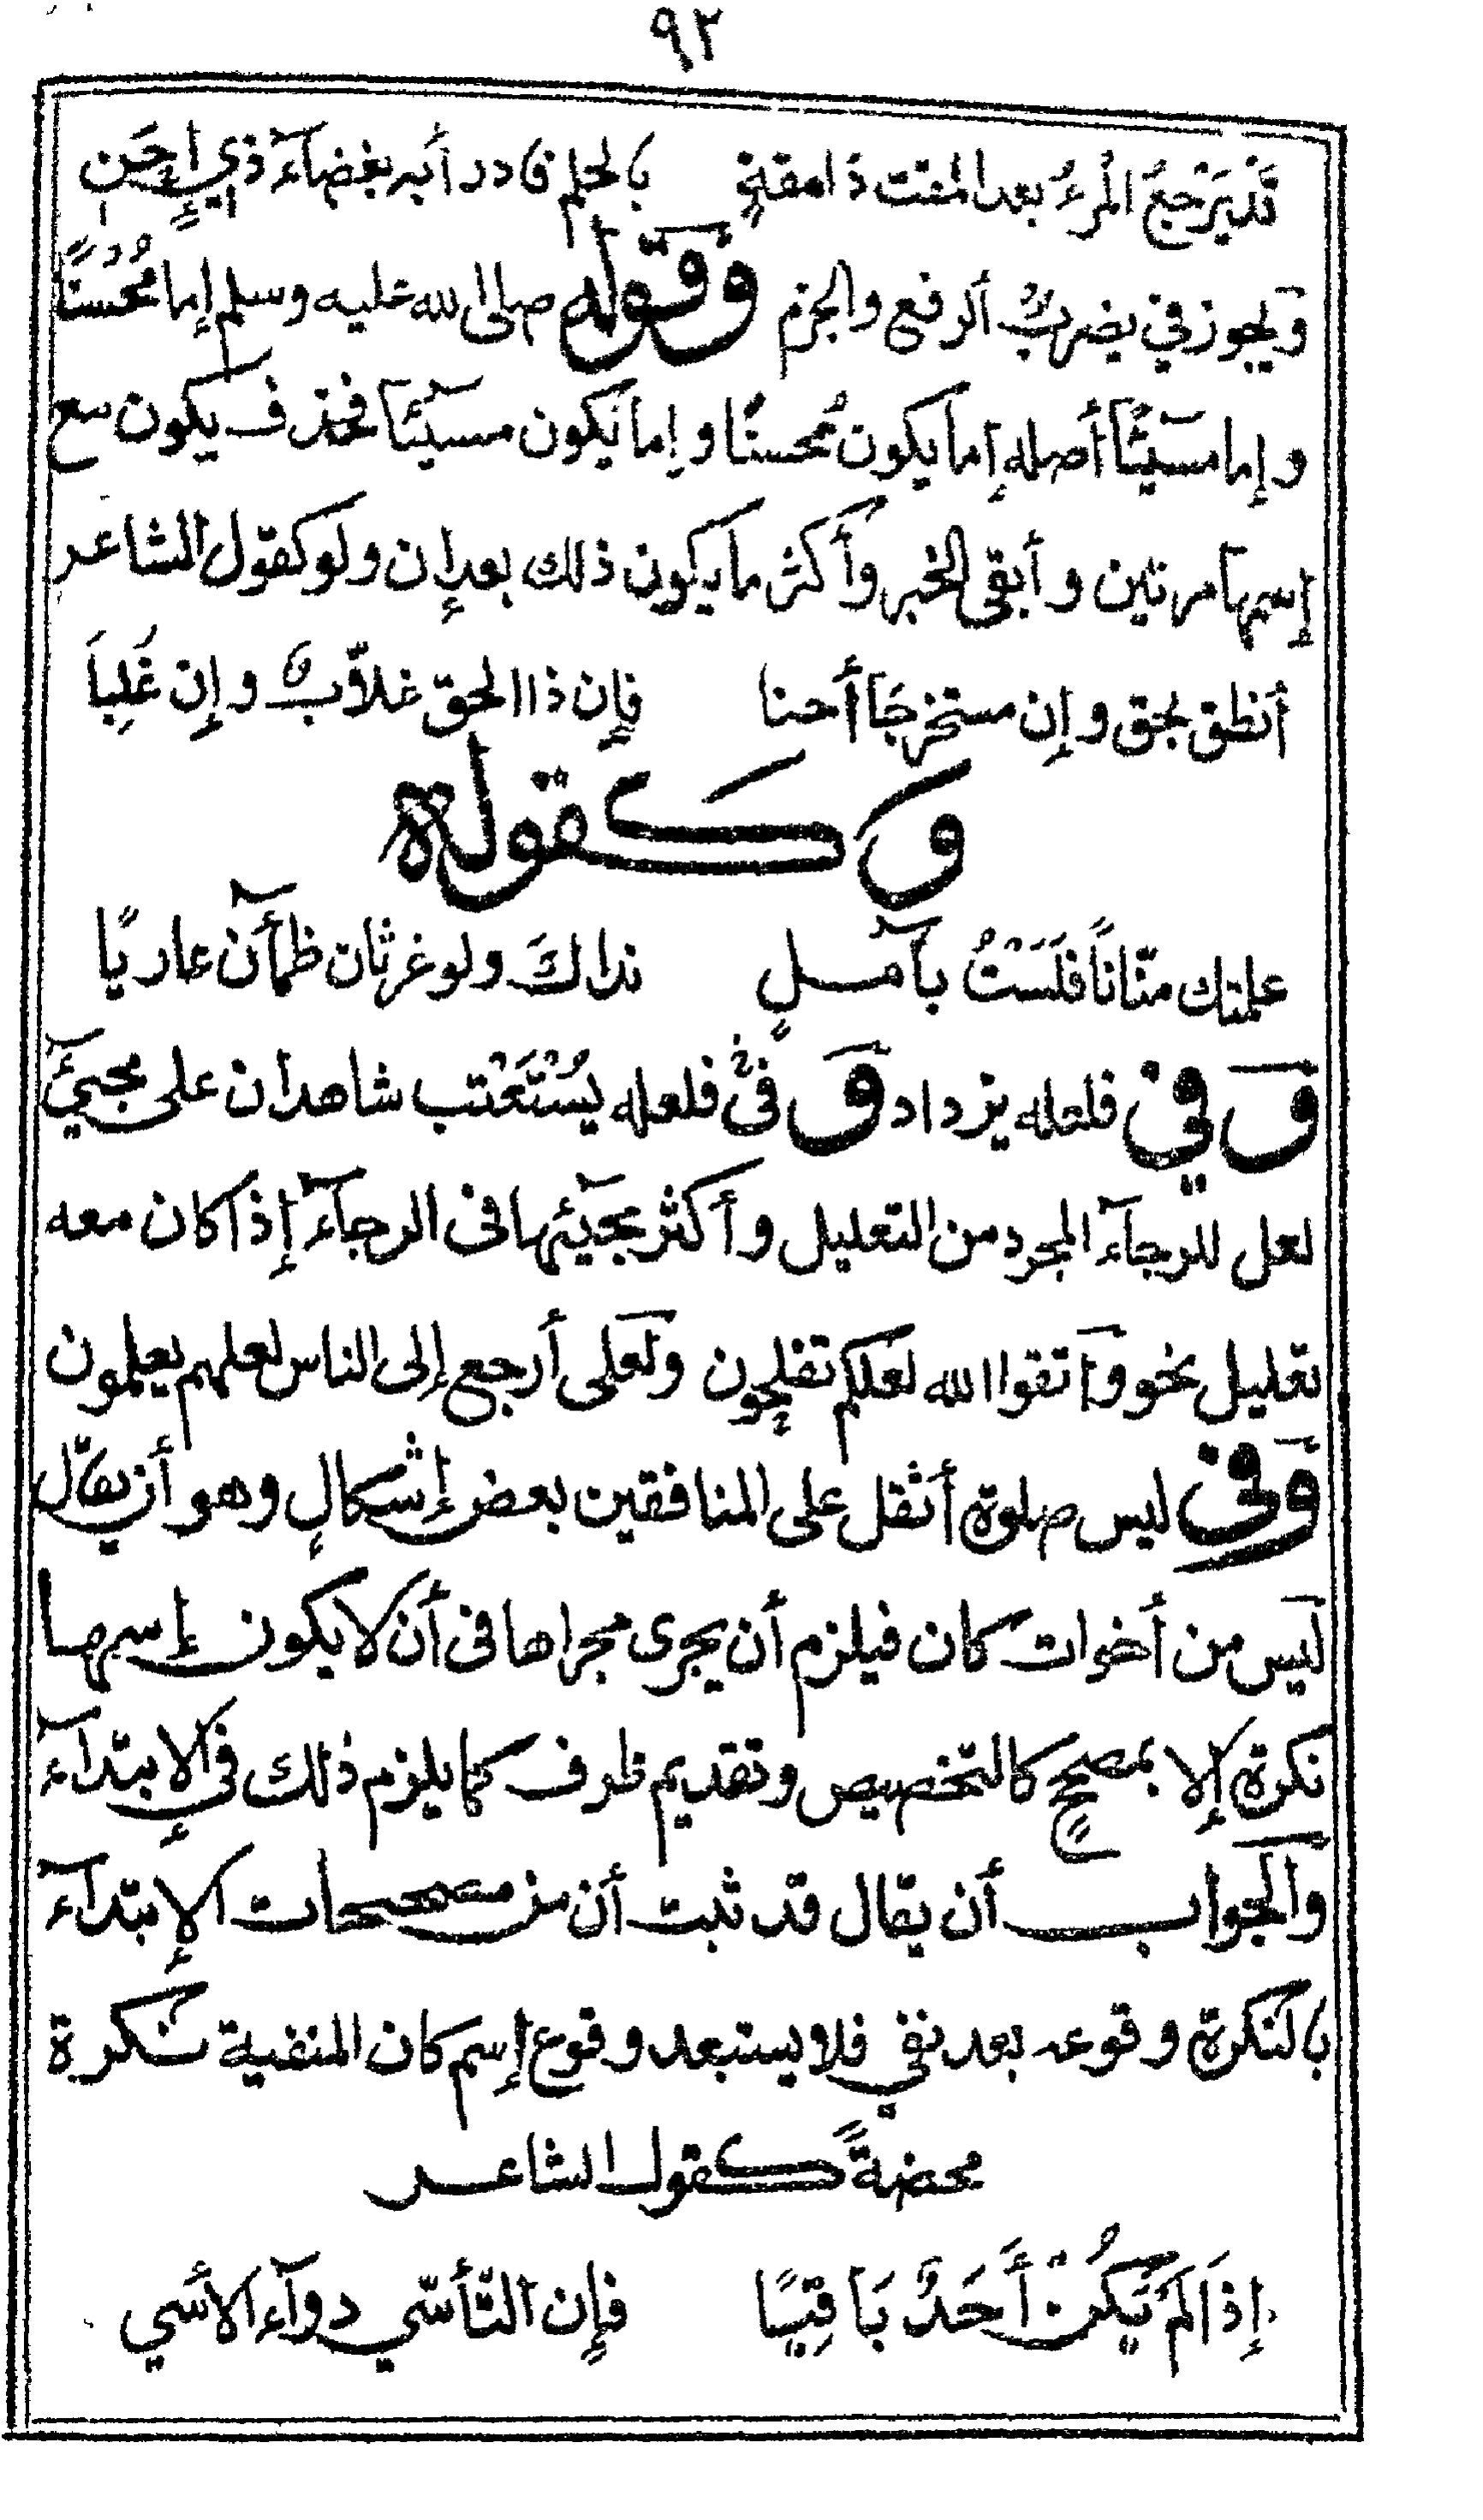 ٩٢
قَدْ يَرْجِعُ المَرْءُ بعد المقت ذا مقةٍ بالحلم فادرأ به بغضآءَ ذي إِحَنِ
وَيجوز في يضربُ الرفع والجزم وَقوله صلى الله عليه وسلم إما مُحْسِنًا
وإما مسيئًا أصله إما يكون مُحسنًا وإما يكون مسيئًا فحذف يكون مع
إسمها مرتين وأبقى الخبر وأكثر ما يكون ذلك بعد إن ولو كقول الشاعر
أنطق بحق وإن مستخرجًا أحنا فإن ذا الحق غلاّبٌ وإن غُلِبَا
وكقوله
علمتك منّانًا فَلَسْتُ بآمُلٍ نداكَ ولو غرثان ظمآن عاريًا
وَفي فلعله يزداد وَفي فلعله يُسْتَعْتب شاهدان على مجيئ
لعل للرجآء المجرد من التعليل وأكثر مجيئها فى الرجآء إذا كان معه
تعليل نحو وَاتقوا الله لعلكم تفلحون وَلعلى أرجع إلى الناس لعلهم يعلمون
وَفى ليس صلوة أثقل على المنافقين بعض إشكالٍ وهو أن يقال
ليس من أخوات كان فيلزم أن يجرى مجراها فى أن لا يكون إسمها
نكرة إلا بمصححٍ كالتخصيص وتقديم ظرف كما يلزم ذلك في الإبتدآء
وَالجواب أن يقال قد ثبت أن من مصححات الإبتدآء
بالنكرة وقوعه بعد نفي فلا يستبعد وقوع إسم كان المنفية نكرة
محضةً كقول الشاعر
إِذَا لَمْ يَكُنْ أَحَدٌ بَاقِيًا فإن التّأسّي دوآء الأَسَي